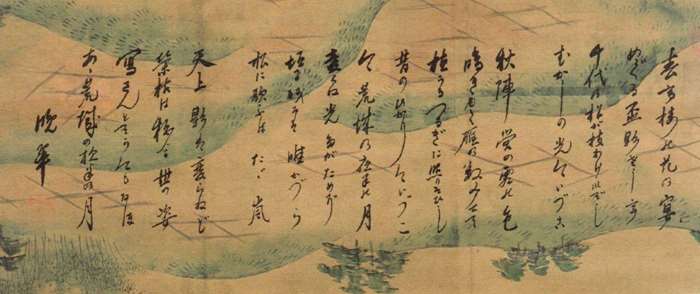 春高楼の花の宴
めぐる盃影さして
千代の松が枝わけ出でし
むかしの光今いづこ
秋陣営の霜の色
鳴き行く雁の数見せて
植うるつるぎに照りそひし
昔のひかり今いづこ
今荒城の夜半の月
変らぬ光たがためぞ
垣に残るは唯かづら
松に歌ふはたゞ嵐
天上影は変らねど
栄枯は移る世の姿
写さんとてか今もなほ
あゝ荒城の夜半の月
晩翠